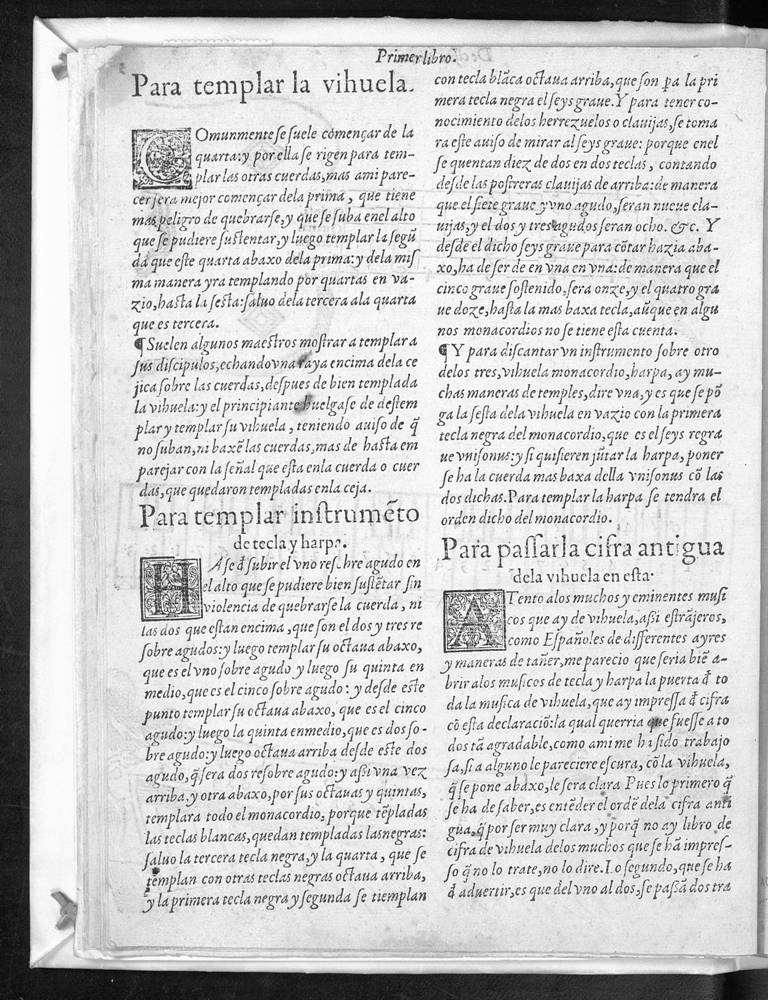 Primer libro.
Para templar la vihuela.
COmunmente se suele començar de la
quarta: y por ella se rigen para tem-
plar las otras cuerdas, mas a mi pare-
cer sera mejor començar dela prima, que tiene
mas peligro de quebrarse, y que se suba enel alto
que se pudiere sustentar, y luego templar la segũ
da que este quarta abaxo dela prima: y dela mis
ma manera yra templando por quartas en va-
zio, hasta la sesta: saluo dela tercera ala quarta
que es tercera.
¶ Suelen algunos maestros mostrar a templar a
sus discipulos, echando vna raya encima dela ce
jica sobre las cuerdas, despues de bien templada
la vihuela: y el principiante huelgase de destem
plar y templar su vihuela, teniendo auiso de q̃
no suban, ni baxẽ las cuerdas, mas de hasta em
parejar con la señal que esta enla cuerda o cuer
das, que quedaron templadas enla ceja.
Para templar instrumẽto
de tecla y harpa.
HAse đ subir el vno resobre agudo en
el alto que se pudiere bien sustẽtar sin
violencia de quebrarse la cuerda, ni
las dos que estan encima, que son el dos y tres re
sobre agudos: y luego templar su octaua abaxo,
que es el vno sobre agudo y luego su quinta en
medio, que es el cinco sobre agudo: y desde este
punto templar su octaua abaxo, que es el cinco
agudo: y luego la quinta enmedio, que es dos so-
bre agudo: y luego octaua arriba desde este dos
agudo, q̃ sera dos resobre agudo: y assi vna vez
arriba, y otra abaxo, por sus octauas y quintas,
templara todo el monacordio, porque tẽpladas
las teclas blancas, quedan templadas las negras:
saluo la tercera tecla negra, y la quarta, que se
templan con otras teclas negras octaua arriba,
y la primera tecla negra y segunda se tiemplan
con tecla blãca octaua arriba, que son ꝑa la pri
mera tecla negra el seys graue. Y para tener co-
nocimiento delos herrezuelos o clauijas, se toma
ra este auiso de mirar al seys graue: porque enel
se quentan diez de dos en dos teclas, contando
desde las postreras clauijas de arriba: de manera
que el siete graue y vno agudo, seran nueue cla-
uijas, y el dos y tres agudos seran ocho. &c. Y
desde el dicho seys graue para cõtar hazia aba-
xo, ha de ser de en vna en vna: de manera que el
cinco graue sostenido, sera onze, y el quatro gra
ue doze, hasta la mas baxa tecla, aũque en algu
nos monacordios no se tiene esta cuenta.
¶ Y para discantar vn instrumento sobre otro
delos tres, vihuela monacordio, harpa, ay mu-
chas maneras de temples, dire vna, y es que se põ
ga la sesta dela vihuela en vazio con la primera
tecla negra del monacordio, que es el seys regra
ue vnisonus: y si quisieren jũtar la harpa, poner
se ha la cuerda mas baxa della vnisonus cõ las
dos dichas. Para templar la harpa se tendra el
orden dicho del monacordio.
Para passar la cifra antigua
dela vihuela en esta.
ATento alos muchos y eminentes musi
cos que ay de vihuela, assi estrãjeros,
como Españoles de differentes ayres
y maneras de tañer, me parecio que seria biẽ a-
brir alos musicos de tecla y harpa la puerta đ to
da la musica de vihuela, que ay impressa đ cifra
cõ esta declaraciõ: la qual querria que fuesse a to
dos tã agradable, como a mi me ha sido trabajo
sa, si a alguno le pareciere escura, cõ la vihuela,
q̃ se pone abaxo, le sera clara Pues lo primero q̃
se ha de saber, es entẽder el ordẽ dela cifra anti
gua, q̃ por ser muy clara, y porq̃ no ay libro de
cifra de vihuela delos muchos que se hã impres-
so q̃ no lo trate, no lo dire. Lo segundo, que se ha
đ aduertir, es que del vno al dos, se passã dos tra